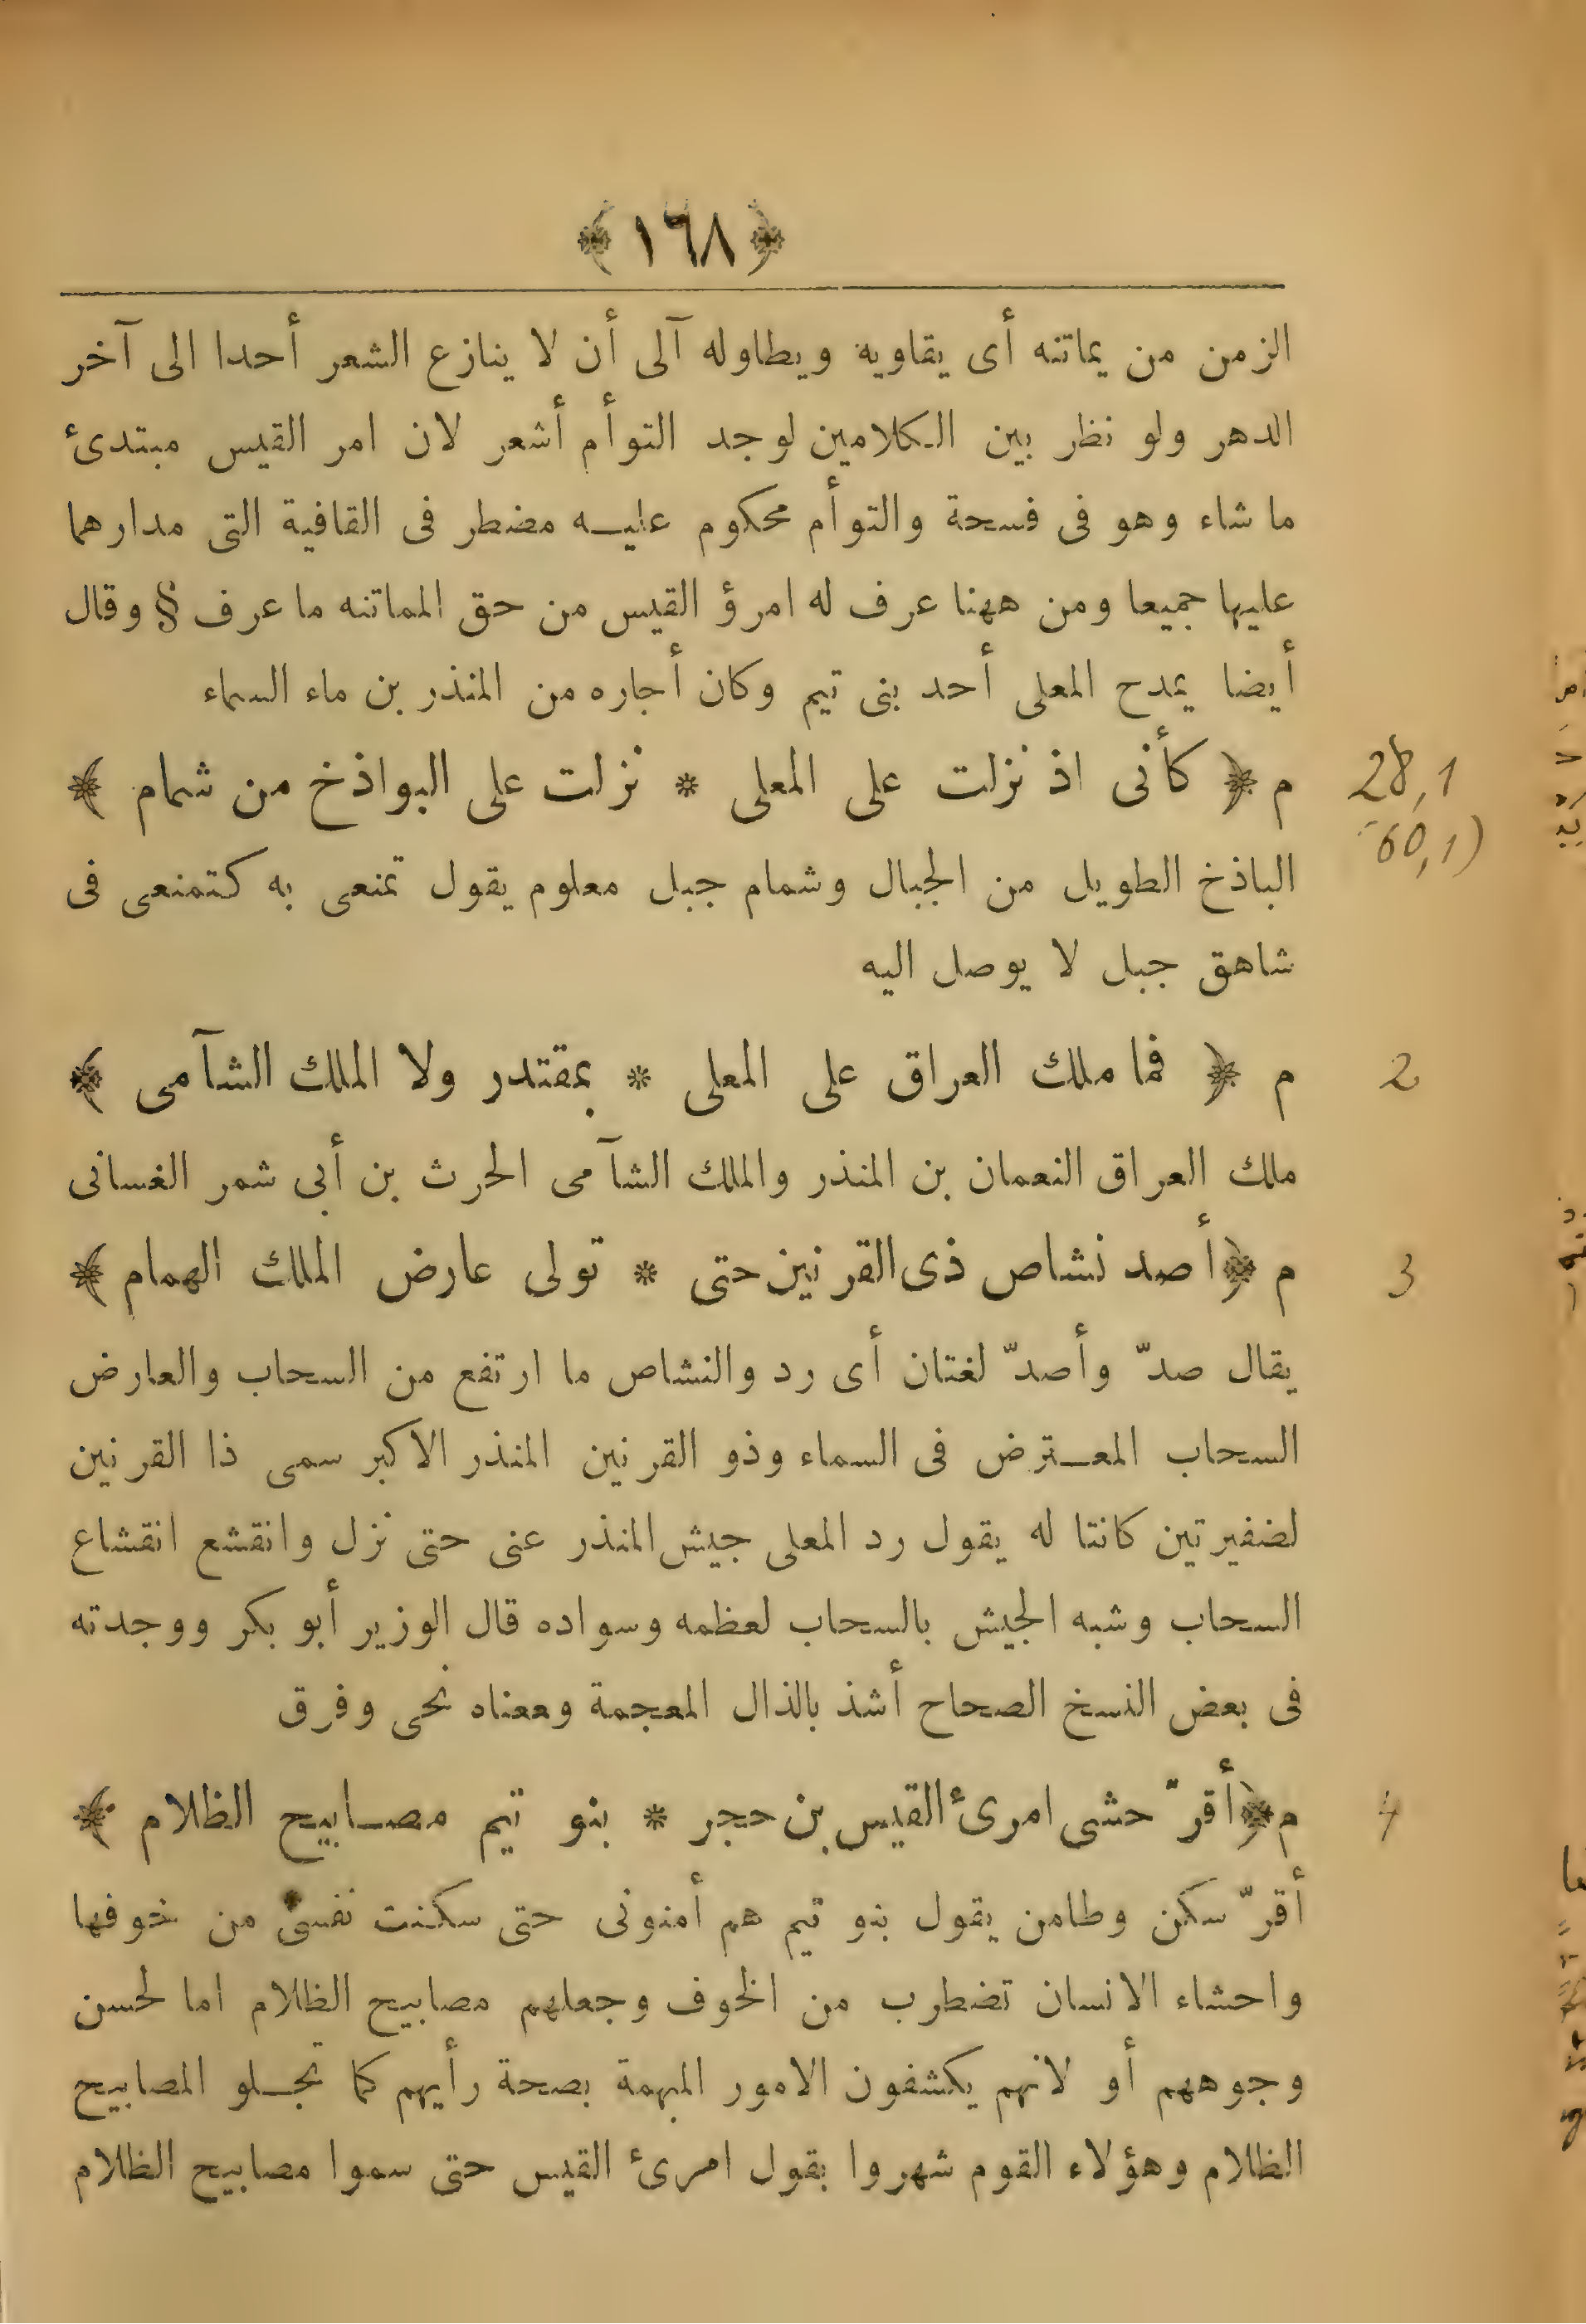 ﴿ ١٦٨ ﴾
الزمن من يماتنه أى يقاويه ويطاوله آلى أن لا ينازع الشعر أحدا الى آخر
الدهر ولو نظر بين الكلامين لوجد التوأم أشعر لان امر القيس مبتدئ
ما شاء وهو فى فسحة والتوأم محكوم عليه مضطر فى القافية التى مدارهما
عليها جميعا ومن ههنا عرف له امرؤ القيس من حق المماتنه ما عرف § وقال
أيضا يمدح المعلى أحد بنى تيم وكان أجاره من المنذر بن ماء السماء
م ﴿ كأنى اذ نزلت على المعلى * نزلت على البواذخ من شمام ﴾ 28,1
60,1)
الباذخ الطويل من الجبال وشمام جبل معلوم يقول تمنعى به كتمنعى فى
شاهق جبل لا يوصل اليه
م ﴿ فما ملك العراق على المعلى * بمقتدر ولا الملك الشآمى ﴾ 2
ملك العراق النعمان بن المنذر والملك الشآمى الحرث بن أبى شمر الغسانى
م ﴿ أصد نشاص ذى القرنين حتى * تولى عارض الملك الهمام ﴾ 3
يقال صدّ وأصدّ لغتان أى رد والنشاص ما ارتفع من السحاب والعارض
السحاب المعترض فى السماء وذو القرنين المنذر الاكبر سمى ذا القرنين
لضفيرتين كانتا له يقول رد المعلى جيش المنذر عنى حتى نزل وانقشع انقشاع
السحاب وشبه الجيش بالسحاب لعظمه وسواده قال الوزير أبو بكر ووجدته
فى بعض النسخ الصحاح أشذ بالذال المعجمة ومعناه نحى وفرق
م ﴿ أقرّ حشى امرئ القيس بن حجر * بنو تيم مصابيح الظلام ﴾ 4
أقرّ سكن وطامن يقول بنو تيم هم أمنونى حتى سكنت نفسى من خوفها
واحشاء الانسان تضطرب من الخوف وجعلهم مصابيح الظلام اما لحسن
وجوههم أو لانهم يكشفون الامور المبهمة بصحة رأيهم كما تجلو المصابيح
الظلام وهؤلاء القوم شهروا بقول امرئ القيس حتى سموا مصابيح الظلام